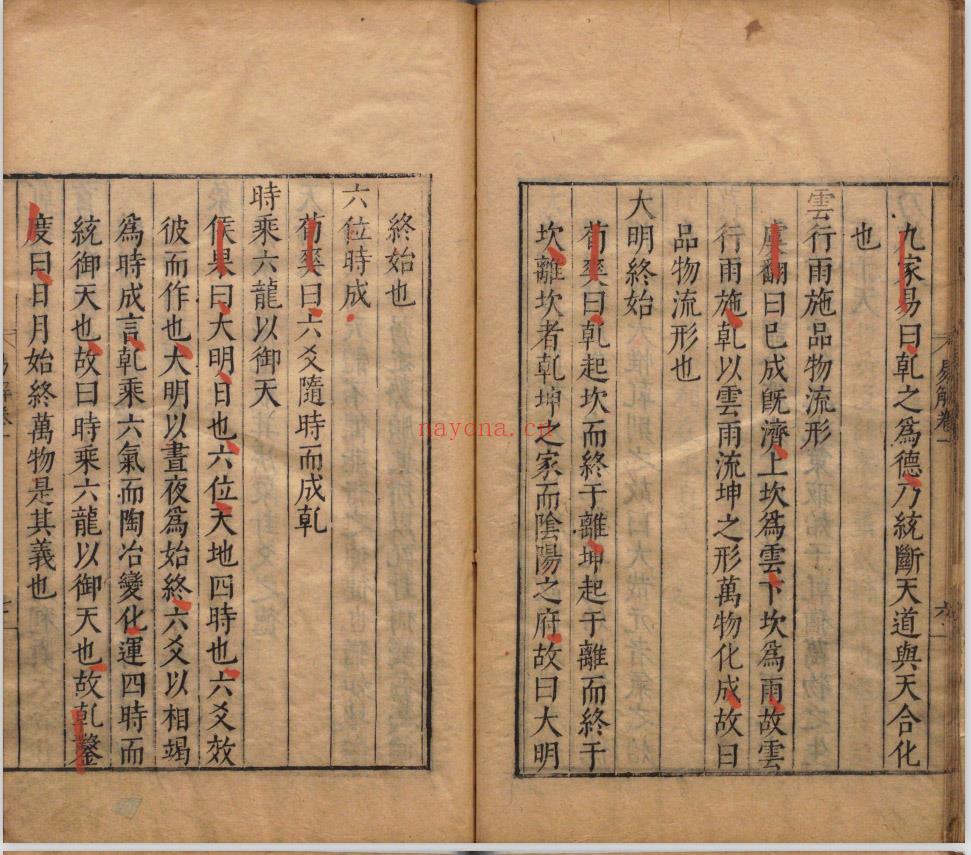 九家易曰乹之爲德乃統斷天道與天合化
也
雲行雨施品物流形
虞翻曰巳成旣濟上坎爲雲下坎爲雨故雲
行雨施乹以雲雨流坤之形萬物化成故曰
品物流形也
大明終始
荀爽曰乹起坎而終于離坤起于離而終于
坎離坎者乹坤之家而陰陽之府故曰大明
終始也
六位時成
荀爽曰六爻隨時而成乹
時乘六龍以御天
侯果曰大明日也六位天地四時也六爻效
彼而作也大明以晝夜爲始終六爻以相竭
爲時成言乹乘六氣而陶冶變化運四時而
統御天也故曰時乘六龍以御天也故乹鑿
度曰日月始終萬物是其義也
易解卷一
六
nayona.cn